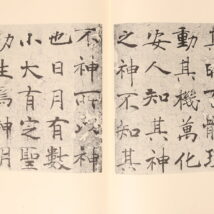 骸理
動其機萬化
安人知其神
之神不知其
不神而以神
也日月有數
小大有定聖
功生焉神明